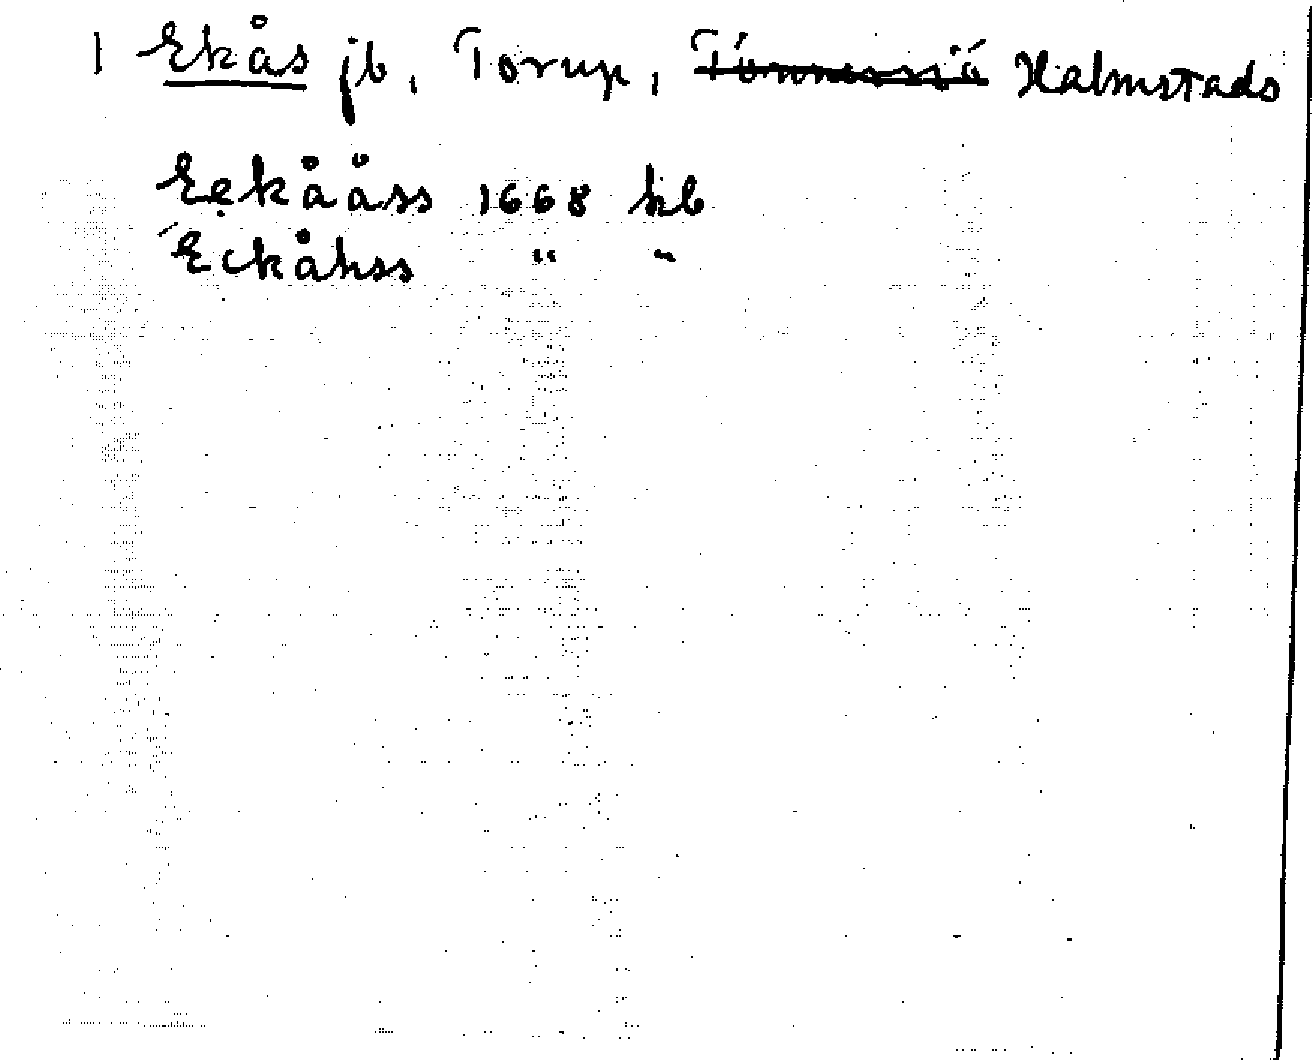 1 Ekås jb, Torup, Tönnersjö Halmstads
Eekååss 1668 kb
Eckåhss " "